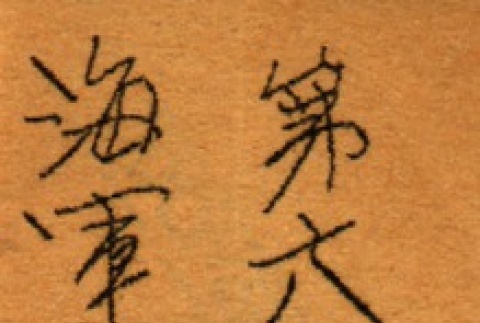 第六
海軍